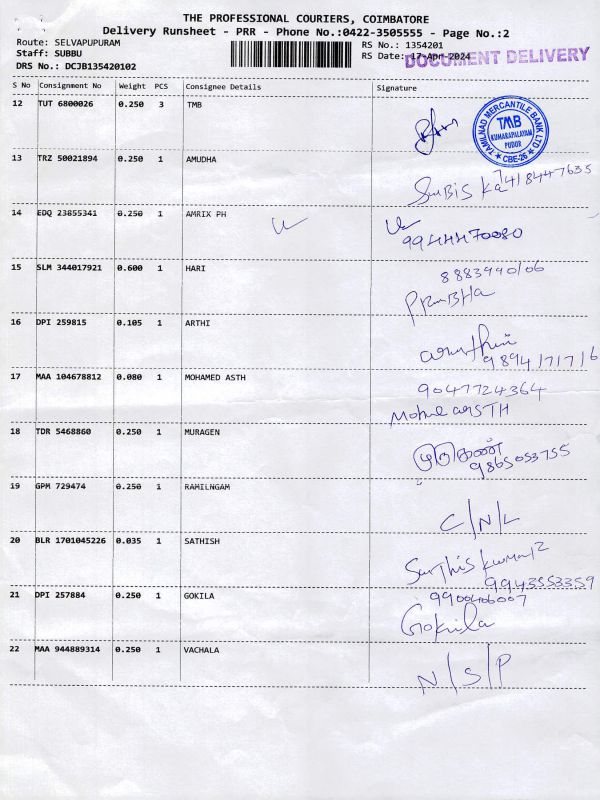 THE PROFESSIONAL COURIERS, COIMBATORE
Delivery Runsheet - PRR - Phone No.:0422-3505555 - Page No.:2
Route: SELVAPUPURAM
RS No.: 1354201
Staff: SUBBU
RS Date: 17-Apr-2024
DOCUMENT DELIVERY
DRS No.: DCJB135420102
S No Consignment No Weight PCS Consignee Details Signature
12 TUT 6800026 0.250 3 TMB
TAMILNAD MERCANTILE BANK LTD
TMB
KUMARAPALAYAM
PUDUR
CBE-26
13 TRZ 50021894 0.250 1 AMUDHA
7418447635
14 EDQ 23855341 0.250 1 AMRIX PH
9944470080
15 SLM 344017921 0.600 1 HARI
8883990106
PRamBHa
16 DPI 259815 0.105 1 ARTHI
9894171716
17 MAA 104678812 0.080 1 MOHAMED ASTH
9047724364
18 TDR 5468860 0.250 1 MURAGEN
முருகன்
9865053755
19 GPM 729474 0.250 1 RAMILNGAM
C/N/L
20 BLR 1701045226 0.035 1 SATHISH
9943553359
21 DPI 257884 0.250 1 GOKILA
9900406007
Gokila
22 MAA 944889314 0.250 1 VACHALA
N/S/P